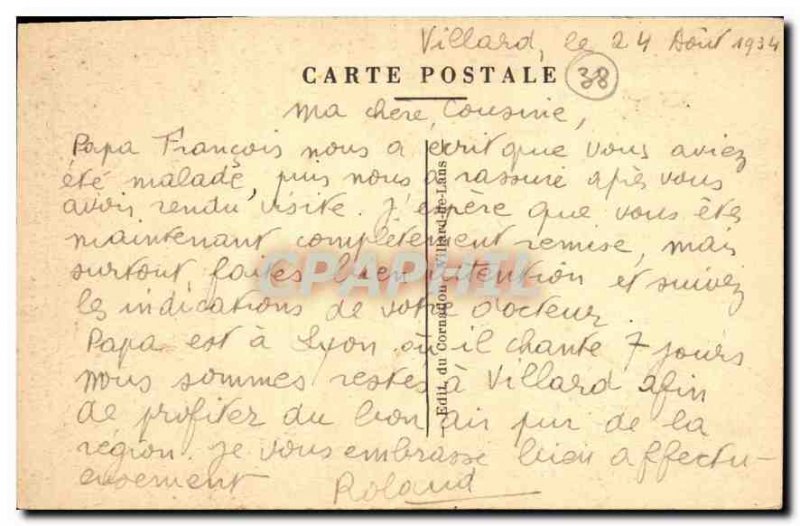 Villard, le 24 Août 1934
CARTE POSTALE
38
Ma chère Cousine,
Papa François nous a écrit que vous aviez
été malade, puis nous a rassuré après vous
avoir rendu visite. J'espère que vous êtes
maintenant complètement remise, mais
surtout faites bien attention et suivez
les indications de votre docteur.
Papa est à Lyon où il chante 7 jours
nous sommes restés à Villard afin
de profiter du bon air pur de la
région. je vous embrasse bien affectu-
eusement
Roland
Edit. du Cornafion, Villard-de-Lans
CPAPHIL